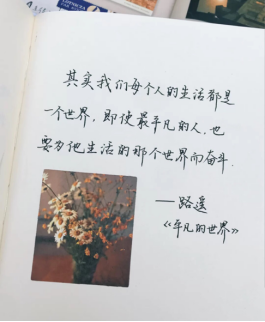 其实我们每个人的生活都是
一个世界，即使最平凡的人，也
要为他生活的那个世界而奋斗.
——路遥
《平凡的世界》